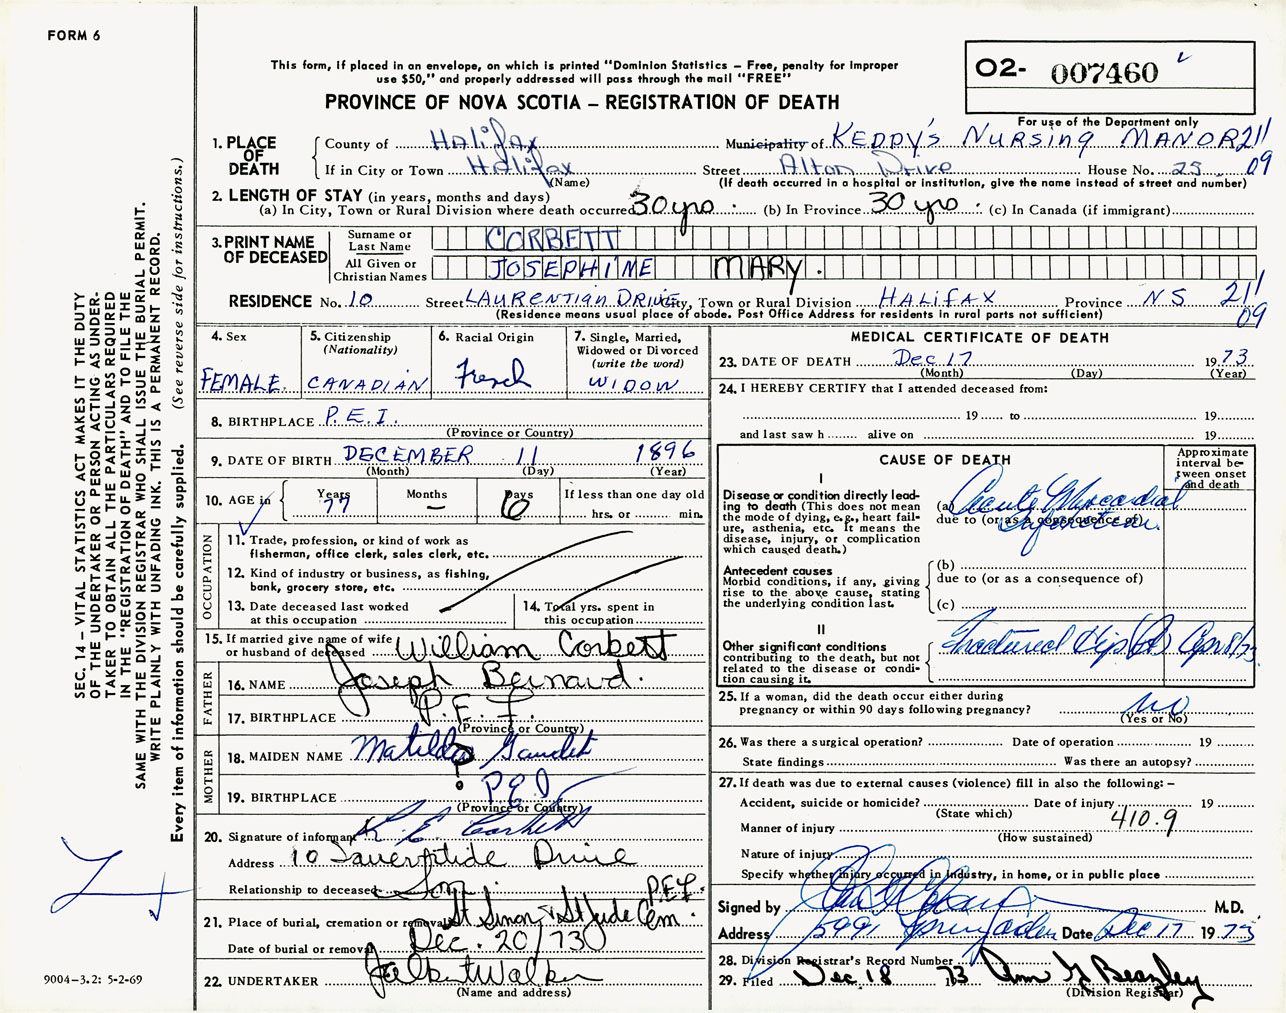 FORM 6
This form, if placed in an envelope, on which is printed "Dominion Statistics – Free, penalty for improper
use $50," and properly addressed will pass through the mail "FREE"
PROVINCE OF NOVA SCOTIA – REGISTRATION OF DEATH
O2- 007460
For use of the Department only
1. PLACE OF DEATH
County of Halifax Municipality of KEDDY'S NURSING MANOR 211
If in City or Town Halifax Street Alton Drive House No. 25 09
(Name) (If death occurred in a hospital or institution, give the name instead of street and number)
2. LENGTH OF STAY (in years, months and days)
(a) In City, Town or Rural Division where death occurred 30 yrs. (b) In Province 30 yrs. (c) In Canada (if immigrant)
3. PRINT NAME OF DECEASED
Surname or Last Name CORBETT
All Given or Christian Names JOSEPHINE MARY.
RESIDENCE No. 10 Street LAURENTIAN DRIVE City, Town or Rural Division HALIFAX Province NS 211
(Residence means usual place of abode. Post Office Address for residents in rural parts not sufficient) 09
4. Sex FEMALE
5. Citizenship (Nationality) CANADIAN
6. Racial Origin French
7. Single, Married, Widowed or Divorced (write the word) WIDOW
8. BIRTHPLACE P.E.I.
(Province or Country)
9. DATE OF BIRTH DECEMBER 11 1896
(Month) (Day) (Year)
10. AGE in Years 77 Months – Days 6 If less than one day old hrs. or min.
OCCUPATION
11. Trade, profession, or kind of work as
fisherman, office clerk, sales clerk, etc.
12. Kind of industry or business, as fishing,
bank, grocery store, etc.
13. Date deceased last worked
at this occupation
14. Total yrs. spent in
this occupation
15. If married give name of wife
or husband of deceased William Corbett
FATHER
16. NAME Joseph Bernard.
17. BIRTHPLACE P.E.I.
(Province or Country)
MOTHER
18. MAIDEN NAME Matilda Gaudet
?
19. BIRTHPLACE PEI
(Province or Country)
20. Signature of informant R. E. Corbett
Address 10 Drive
Relationship to deceased Son
21. Place of burial, cremation or removal St Simon & St Jude Cem. P.E.I.
Date of burial or removal Dec. 20/73
22. UNDERTAKER Walker
(Name and address)
MEDICAL CERTIFICATE OF DEATH
23. DATE OF DEATH Dec 17 1973
(Month) (Day) (Year)
24. I HEREBY CERTIFY that I attended deceased from:
19 to 19
and last saw h alive on 19
CAUSE OF DEATH
Approximate interval between onset and death
I
Disease or condition directly lead-
ing to death (This does not mean
the mode of dying, e.g., heart fail-
ure, asthenia, etc. It means the
disease, injury, or complication
which caused death.)
(a) Acute Myocardial
due to (or as a consequence of) Infarction.
Antecedent causes
Morbid conditions, if any, giving
rise to the above cause, stating
the underlying condition last.
(b)
due to (or as a consequence of)
(c)
II
Other significant conditions
contributing to the death, but not
related to the disease or condi-
tion causing it.
Fractured Hip (R) Apr 8/73
25. If a woman, did the death occur either during
pregnancy or within 90 days following pregnancy? no
(Yes or No)
26. Was there a surgical operation? Date of operation 19
State findings Was there an autopsy?
27. If death was due to external causes (violence) fill in also the following: –
Accident, suicide or homicide? Date of injury 19
(State which) 410.9
Manner of injury
(How sustained)
Nature of injury
Specify whether injury occurred in industry, in home, or in public place
Signed by M.D.
Address 5991 Spring Garden Date Dec 17 1973
28. Division Registrar's Record Number
29. Filed Dec 18 1973 Ann Beazley
(Division Registrar)
SEC. 14 – VITAL STATISTICS ACT MAKES IT THE DUTY
OF THE UNDERTAKER OR PERSON ACTING AS UNDER-
TAKER TO OBTAIN ALL THE PARTICULARS REQUIRED
IN THE "REGISTRATION OF DEATH" AND TO FILE THE
SAME WITH THE DIVISION REGISTRAR WHO SHALL ISSUE THE BURIAL PERMIT.
WRITE PLAINLY WITH UNFADING INK. THIS IS A PERMANENT RECORD.
Every item of information should be carefully supplied. (See reverse side for instructions.)
9004–3.2: 5-2-69